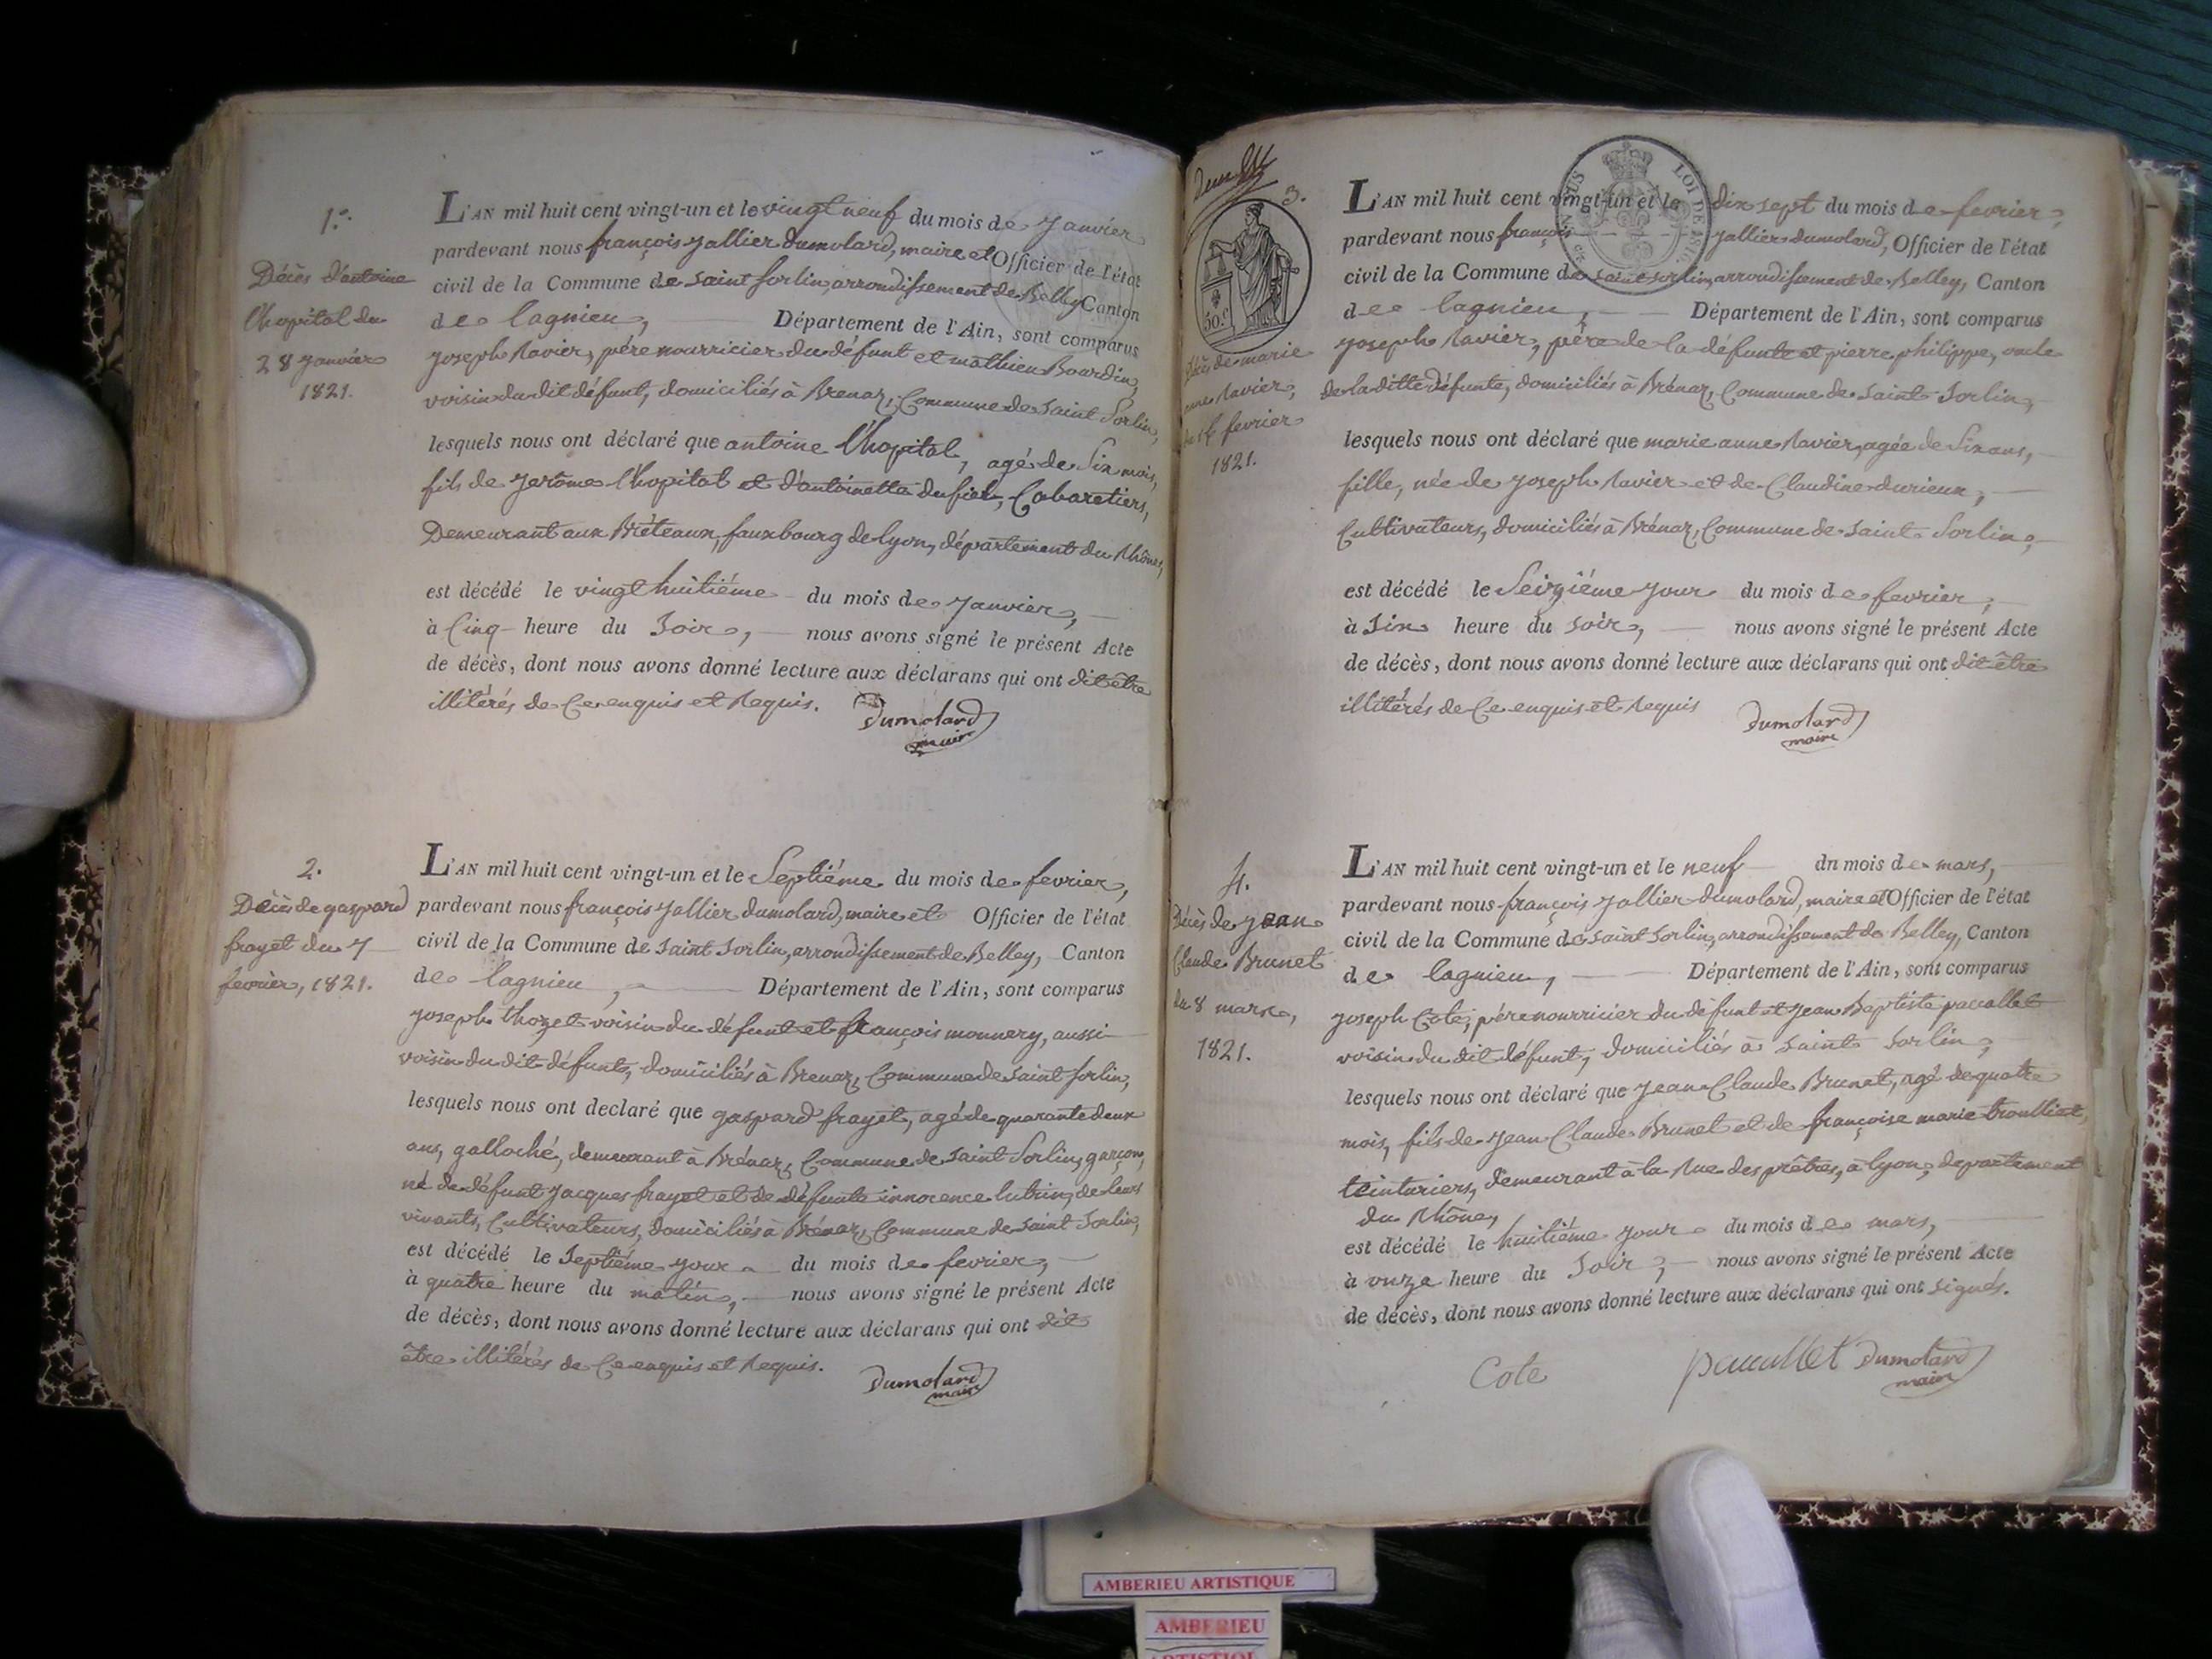 1.°
Décès d'antoine
l'hopital du
28 janvier
1821.
L'AN mil huit cent vingt-un et le vingt neuf du mois de janvier
pardevant nous françois jallier dumolard, maire et Officier de l'état
civil de la Commune de saint sorlin, arrondissement de Belley Canton
de lagnieu, Département de l'Ain, sont comparus
joseph Ravier, père nourricier du défunt et mathieu Bourdin,
voisin du dit défunt, domiciliés à Brenaz, Commune de saint Sorlin,
lesquels nous ont déclaré que antoine l'hopital, agé de Six mois,
fils de jarôme l'hopital et d'antoinette dufiel, Cabaretiers,
Demeurant aux Bréteaux, fauxbourg de lyon, département du Rhône,
est décédé le vingt huitiéme du mois de janvier,
à Cinq heure du Soir, nous avons signé le présent Acte
de décès, dont nous avons donné lecture aux déclarans qui ont dit être
illitérés de Ce enquis et Requis. Dumolard
maire
2.
Décès de gaspard
frayet du 7
fevrier, 1821.
L'AN mil huit cent vingt-un et le Septiéme du mois de fevrier,
pardevant nous françois jallier dumolard, maire et Officier de l'état
civil de la Commune de saint sorlin, arrondissement de Belley, Canton
de lagnieu, Département de l'Ain, sont comparus
joseph thozet voisin du défunt et françois monnery, aussi
voisin du dit défunt, domiciliés à Brenaz, Commune de saint sorlin,
lesquels nous ont declaré que gaspard frayet, agé de quarante deux
ans, galloché, demeurant à Brénaz, Commune de saint Sorlin, garçon,
né de défunt jacques frayet et de défunte innocence lutrin, de leurs
vivants, Cultivateurs, domiciliés à Brénaz, Commune de saint Sorlin,
est décédé le Septiéme jour du mois de fevrier,
à quatre heure du matin, nous avons signé le présent Acte
de décès, dont nous avons donné lecture aux déclarans qui ont dit
être illitérés de Ce enquis et Requis. Dumolard
maire
3.
50.c
Décès de marie
anne Ravier,
du 16 fevrier
1821.
LOI DE 1816.
L'AN mil huit cent vingt-un et le dix sept du mois de fevrier,
pardevant nous françois jallier dumolard, Officier de l'état
civil de la Commune de saint sorlin, arrondissement de Belley, Canton
de lagnieu, Département de l'Ain, sont comparus
joseph Ravier, père de la défunte et pierre philippe, oncle
de la ditte défunte, domiciliés à Brénaz, Commune de saint Sorlin,
lesquels nous ont déclaré que marie anne Ravier, agée de Six ans,
fille, née de joseph Ravier et de Claudine durieux,
Cultivateurs, domiciliés à Brénaz, Commune de saint Sorlin,
est décédé le Seiziéme jour du mois de fevrier,
à Six heure du soir, nous avons signé le présent Acte
de décès, dont nous avons donné lecture aux déclarans qui ont dit être
illitérés de Ce enquis et Requis Dumolard
maire
4.
Décès de jean
Claude Brunet
du 8 mars,
1821.
L'AN mil huit cent vingt-un et le neuf dn mois de mars,
pardevant nous françois jallier dumolard, maire et Officier de l'état
civil de la Commune de saint sorlin, arrondissement de Belley, Canton
de lagnieu, Département de l'Ain, sont comparus
joseph Cote, père nourricier du défunt et jean Baptiste pacallet
voisin du dit défunt, domiciliés à saint sorlin,
lesquels nous ont déclaré que jean Claude Brunet, agé de quatre
mois, fils de jean Claude Brunet et de françoise marie troulliet,
teinturiers, demeurant à la Rue des prêtres, à lyon, departement
du Rhône,
est décédé le huitiéme jour du mois de mars,
à onze heure du Soir, nous avons signé le présent Acte
de décès, dont nous avons donné lecture aux déclarans qui ont signés.
Cote pacallet Dumolard
maire
AMBERIEU ARTISTIQUE
AMBERIEU
ARTISTIQUE